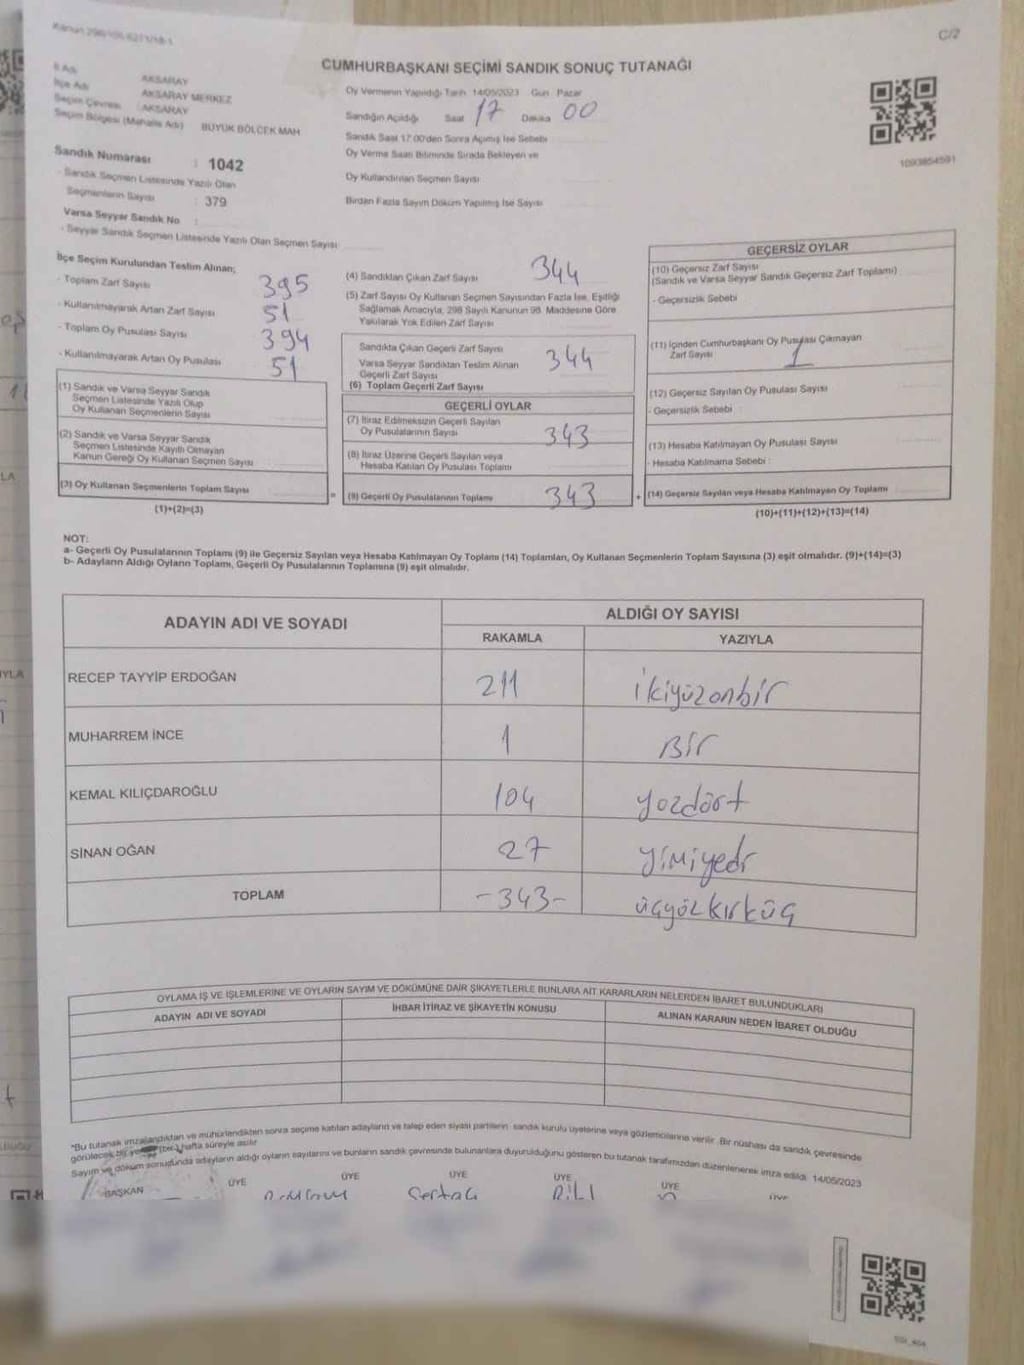 Kanun 298/105-6271/18-1
C/2
CUMHURBAŞKANI SEÇİMİ SANDIK SONUÇ TUTANAĞI
İl Adı AKSARAY
İlçe Adı AKSARAY MERKEZ
Seçim Çevresi : AKSARAY
Seçim Bölgesi (Mahalle Adı) BÜYÜK BÖLCEK MAH
Sandık Numarası : 1042
- Sandık Seçmen Listesinde Yazılı Olan
Seçmenlerin Sayısı : 379
Varsa Seyyar Sandık No :
- Seyyar Sandık Seçmen Listesinde Yazılı Olan Seçmen Sayısı:
Oy Vermenin Yapıldığı Tarih 14/05/2023 Gün Pazar
Sandığın Açıldığı Saat 17 Dakika 00
Sandık Saat 17:00'den Sonra Açılmış İse Sebebi
Oy Verme Saati Bitiminde Sırada Bekleyen ve
Oy Kullandırılan Seçmen Sayısı
Birden Fazla Sayım Döküm Yapılmış İse Sayısı
1093854591
İlçe Seçim Kurulundan Teslim Alınan;
- Toplam Zarf Sayısı 395
- Kullanılmayarak Artan Zarf Sayısı 51
- Toplam Oy Pusulası Sayısı 394
- Kullanılmayarak Artan Oy Pusulası 51
(1) Sandık ve Varsa Seyyar Sandık
Seçmen Listesinde Yazılı Olup
Oy Kullanan Seçmenlerin Sayısı
(2) Sandık ve Varsa Seyyar Sandık
Seçmen Listesinde Kayıtlı Olmayan
Kanun Gereği Oy Kullanan Seçmen Sayısı
(3) Oy Kullanan Seçmenlerin Toplam Sayısı
(1)+(2)=(3)
(4) Sandıktan Çıkan Zarf Sayısı 344
(5) Zarf Sayısı Oy Kullanan Seçmen Sayısından Fazla İse, Eşitliği
Sağlamak Amacıyla, 298 Sayılı Kanunun 98. Maddesine Göre
Yakılarak Yok Edilen Zarf Sayısı
Sandıkta Çıkan Geçerli Zarf Sayısı
Varsa Seyyar Sandıktan Teslim Alınan 344
Geçerli Zarf Sayısı
(6) Toplam Geçerli Zarf Sayısı
GEÇERLİ OYLAR
(7) İtiraz Edilmeksizin Geçerli Sayılan
Oy Pusulalarının Sayısı 343
(8) İtiraz Üzerine Geçerli Sayılan veya
Hesaba Katılan Oy Pusulası Toplamı
= (9) Geçerli Oy Pusulalarının Toplamı 343 +
GEÇERSİZ OYLAR
(10) Geçersiz Zarf Sayısı
(Sandık ve Varsa Seyyar Sandık Geçersiz Zarf Toplamı)
- Geçersizlik Sebebi
(11) İçinden Cumhurbaşkanı Oy Pusulası Çıkmayan
Zarf Sayısı 1
(12) Geçersiz Sayılan Oy Pusulası Sayısı
- Geçersizlik Sebebi :
(13) Hesaba Katılmayan Oy Pusulası Sayısı
- Hesaba Katılmama Sebebi :
(14) Geçersiz Sayılan veya Hesaba Katılmayan Oy Toplamı
(10)+(11)+(12)+(13)=(14)
NOT:
a- Geçerli Oy Pusulalarının Toplamı (9) ile Geçersiz Sayılan veya Hesaba Katılmayan Oy Toplamı (14) Toplamları, Oy Kullanan Seçmenlerin Toplam Sayısına (3) eşit olmalıdır. (9)+(14)=(3)
b- Adayların Aldığı Oyların Toplamı, Geçerli Oy Pusulalarının Toplamına (9) eşit olmalıdır.
ADAYIN ADI VE SOYADI ALDIĞI OY SAYISI
RAKAMLA YAZIYLA
RECEP TAYYİP ERDOĞAN 211 ikiyüzonbir
MUHARREM İNCE 1 Bir
KEMAL KILIÇDAROĞLU 104 yozdört
SİNAN OĞAN 27 yimiyedi
TOPLAM -343- üçyözkırküç
OYLAMA İŞ VE İŞLEMLERİNE VE OYLARIN SAYIM VE DÖKÜMÜNE DAİR ŞİKAYETLERLE BUNLARA AİT KARARLARIN NELERDEN İBARET BULUNDUKLARI
ADAYIN ADI VE SOYADI İHBAR İTİRAZ VE ŞİKAYETİN KONUSU ALINAN KARARIN NEDEN İBARET OLDUĞU
*Bu tutanak imzalandıktan ve mühürlendikten sonra seçime katılan adayların ve talep eden siyasi partilerin sandık kurulu üyelerine veya gözlemcilerine verilir. Bir nüshası da sandık çevresinde
görülecek bir yere (bir) hafta süreyle asılır.
Sayım ve döküm sonucunda adayların aldığı oyların sayılarını ve bunların sandık çevresinde bulunanlara duyurulduğunu gösteren bu tutanak tarafımızdan düzenlenerek imza edildi. 14/05/2023
BAŞKAN ÜYE ÜYE ÜYE ÜYE ÜYE ÜYE
Sertaç